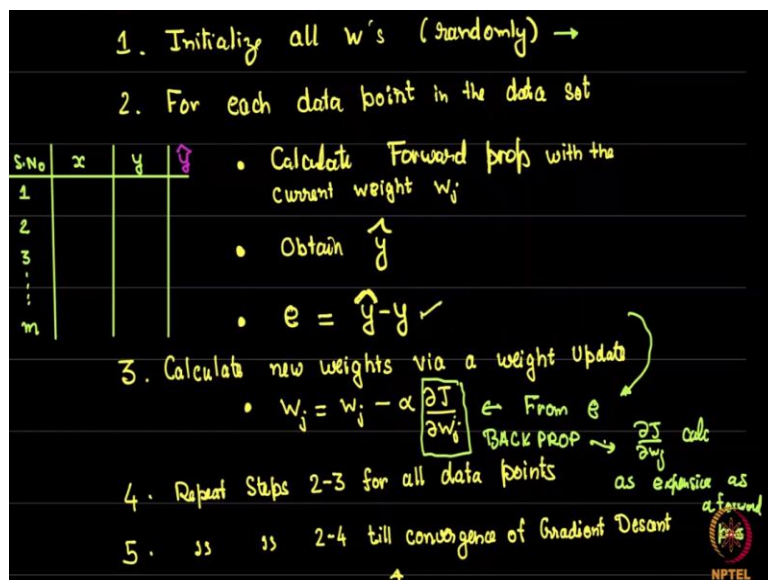 1. Initialize all w's (randomly) →
2. For each data point in the data set
S.No x y ŷ
1
2
3
m
• Calculate Forward prop with the
current weight wj
• Obtain ŷ
• e = ŷ-y ✓
3. Calculate new weights via a weight Update
• Wj = Wj - α ∂J/∂wj ← From e
BACK PROP ⇝ ∂J/∂wj calc
as expensive as
a forward
pass
4. Repeat Steps 2-3 for all data points
5. ״ ״ 2-4 till convergence of Gradient Descant
NPTEL